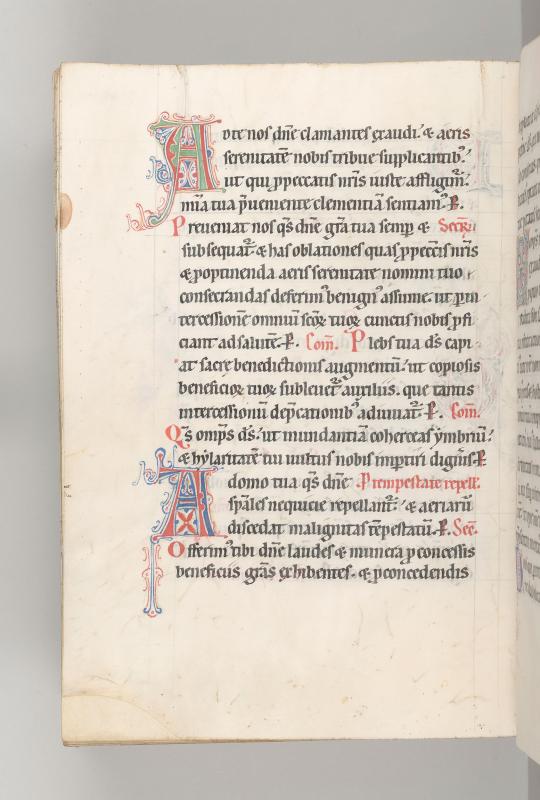 A d te nos dn̄e clamantes exaudi. & aeris
serenitatē nobis tribue supplicantib᷒.
ut qui p̱peccatis nr̄is iuste affligim᷒.
mīa tua p̄ueniente clementiā sentiam᷒. P̱.
Preueniat nos qs̄ dn̄e gr̄a tua semp̱ & Secr̄.
subsequat᷑. & has oblationes quas p̱peccīs nr̄is
& p̱optinenda aeris serenitate nomini tuo
consecrandas deferim᷒ benign᷒ assume. ut p̱ in
tercessionē omniū scōꝝ tuoꝝ cunctis nobis p̱fi
ciant ad salutē. P̱. Com̄. Plebs tua ds̄ capi
at sacre benedictionis augmentū. ut copiosis
beneficioꝝ tuoꝝ subleuet᷑ auxiliis. que tantis
intercessionū dep̱cationib᷒ adiuuat᷑. P̱. Com̄.
Qs̄ omp̄s ds̄. ut mundantiā coherceas ymbriū.
& hylaritatē tui uultus nobis imp̱tiri digneris. P̱
A domo tua qs̄ dn̄e P̱ tempestatē repell.
sp̄ales nequicie repellant᷑. & aeriarū
discedat malignitas tēpestatū. P̱. Sec̄.
Offerim᷒ tibi dn̄e laudes & munera p̱ concessis
beneficiis grās exhibentes. & p̱ concedendis